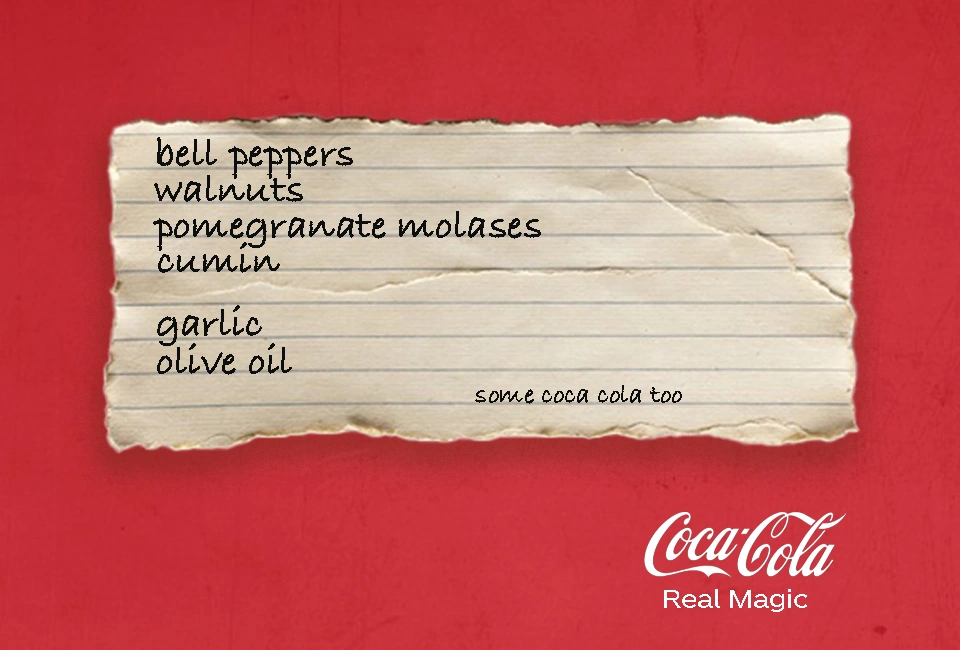 bell peppers
walnuts
pomegranate molases
cumin
garlic
olive oil
some coca cola too
Coca-Cola
Real Magic